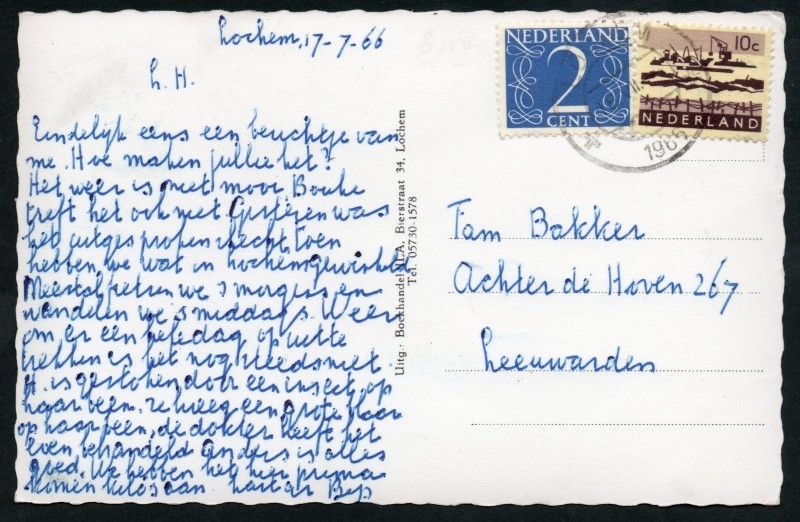 Lochem, 17-7-66
L. H.
Eindelijk eens een berichtje van
me. Hoe maken jullie het?
Het weer is niet mooi Bouke
treft het ook niet Gisteren was
het uitgesproken slecht, toen
hebben we wat in Lochem gewinkeld
Meestal fietsen we 's morgens en
wandelen we 's middags. Weer
om er een hele dag op uit te
trekken is het nog steeds niet.
H. is gestoken door een insect, op
haar been. Ze kreeg een grote blaar
op haar been, de dokter heeft het
even behandeld anders is alles
goed. We hebben het hier prima
komen kilos aan hart. gr Bep
Uitg.: Boekhandel ILA, Bierstraat 34, Lochem
Tel. 05730-1578
NEDERLAND
2
CENT
10c
NEDERLAND
1966
Fam Bakker
Achter de Hoven 267
Leeuwarden